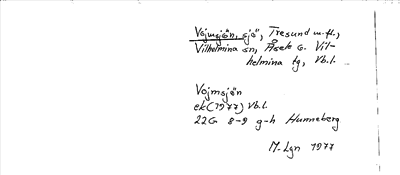 Vojmsjön, sjö, Tresund m.fl.,
Vilhelmina sn, Åsele o. Vil-
helmina tg, Vb.l.
Vojmsjön
ek (1977) Vb.l.
22G 8-9 g-h Hunneberg
M. Lgn 1977